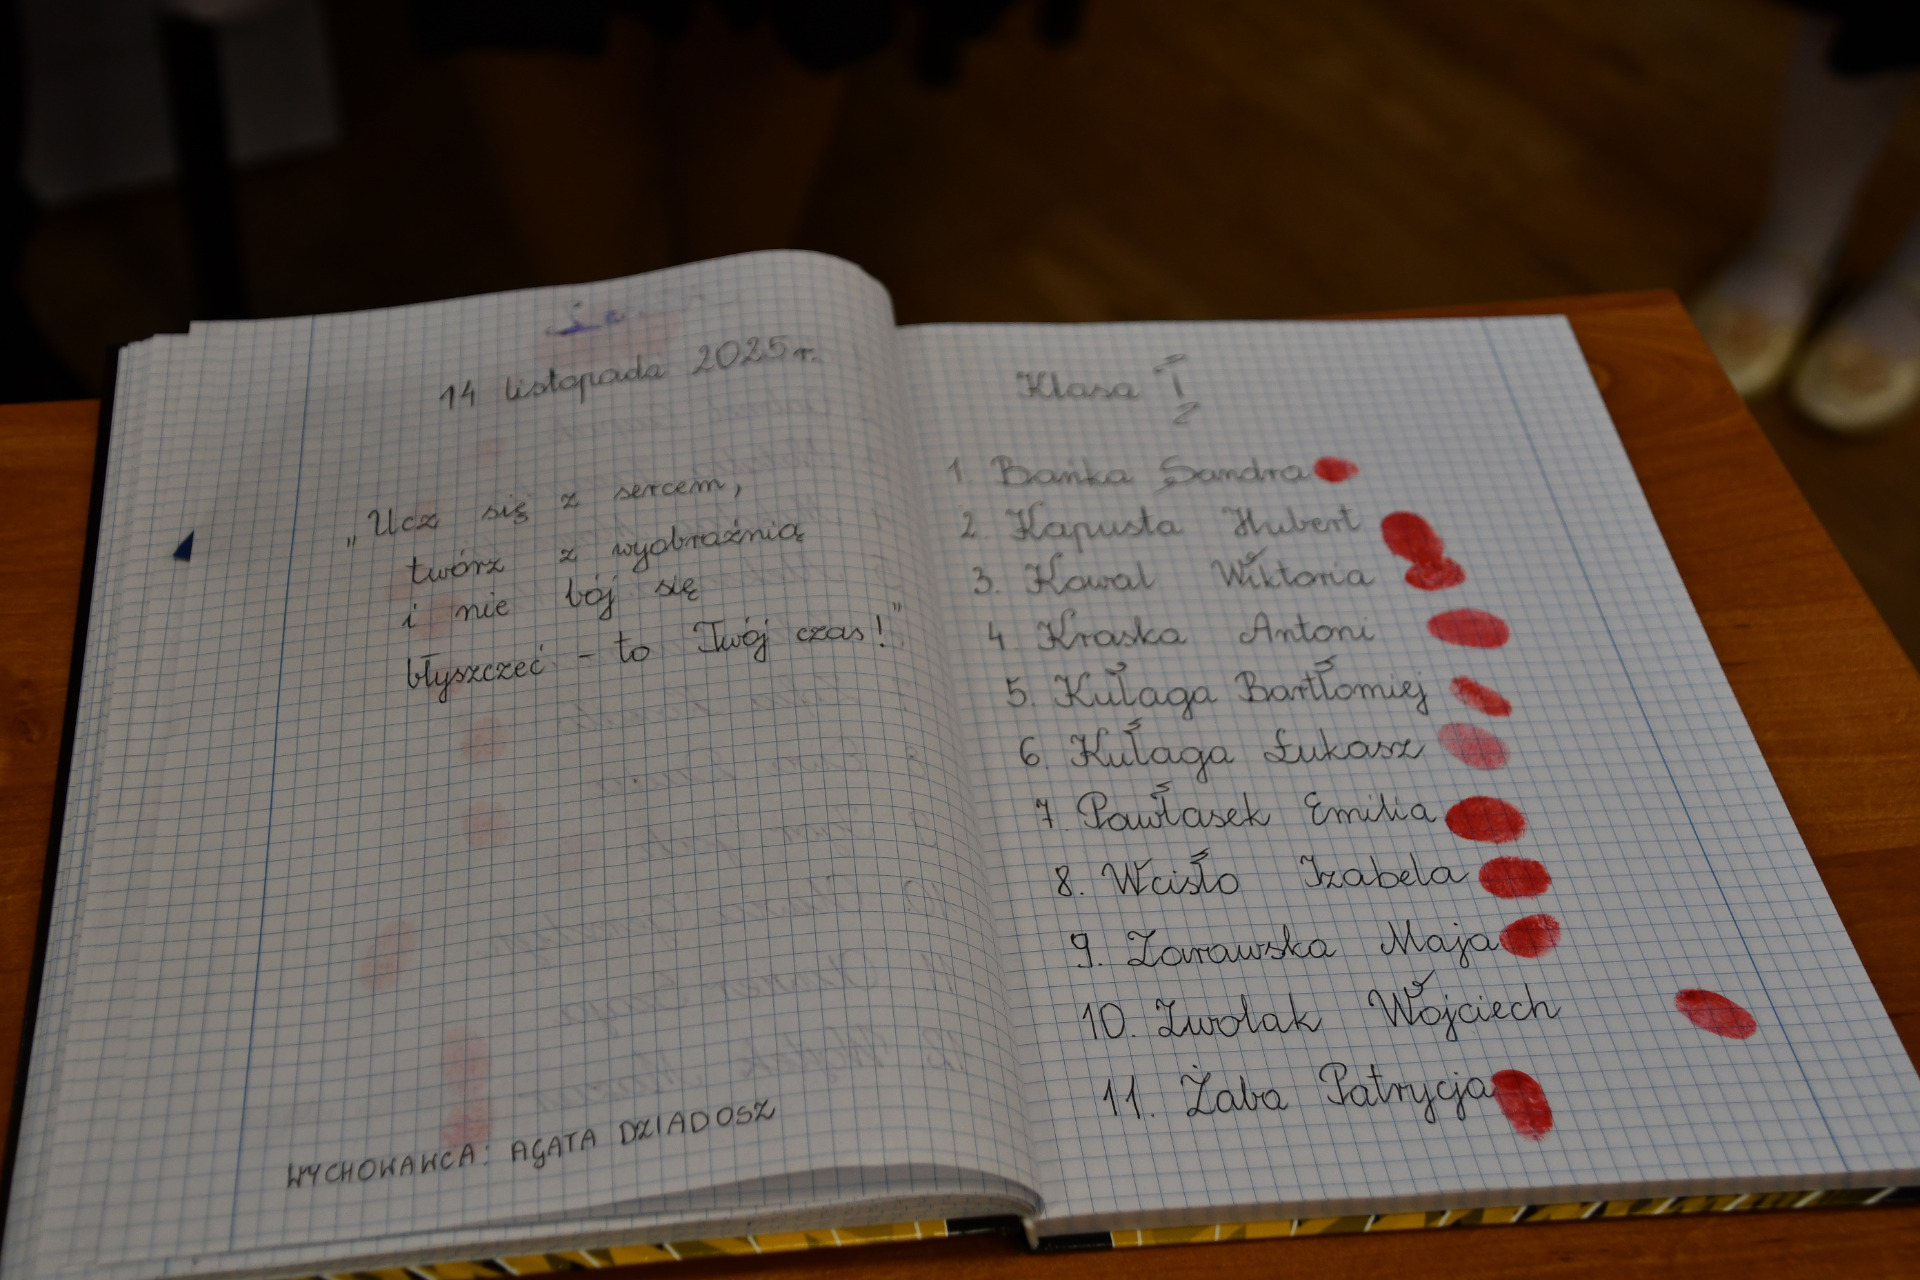 14 listopada 2025r.
„Ucz się z sercem,
twórz z wyobraźnią
i nie bój się
błyszczeć - to Twój czas!"
WYCHOWAWCA: AGATA DZIADOSZ
Klasa I
2
1. Bańka Sandra
2. Kapusta Hubert
3. Kowal Wiktoria
4 Kraska Antoni
5. Kułaga Bartłomiej
6. Kułaga Łukasz
7. Pawłasek Emilia
8. Wcisło Izabela
9. Zarawska Maja
10. Zwolak Wojciech
11. Żaba Patrycja